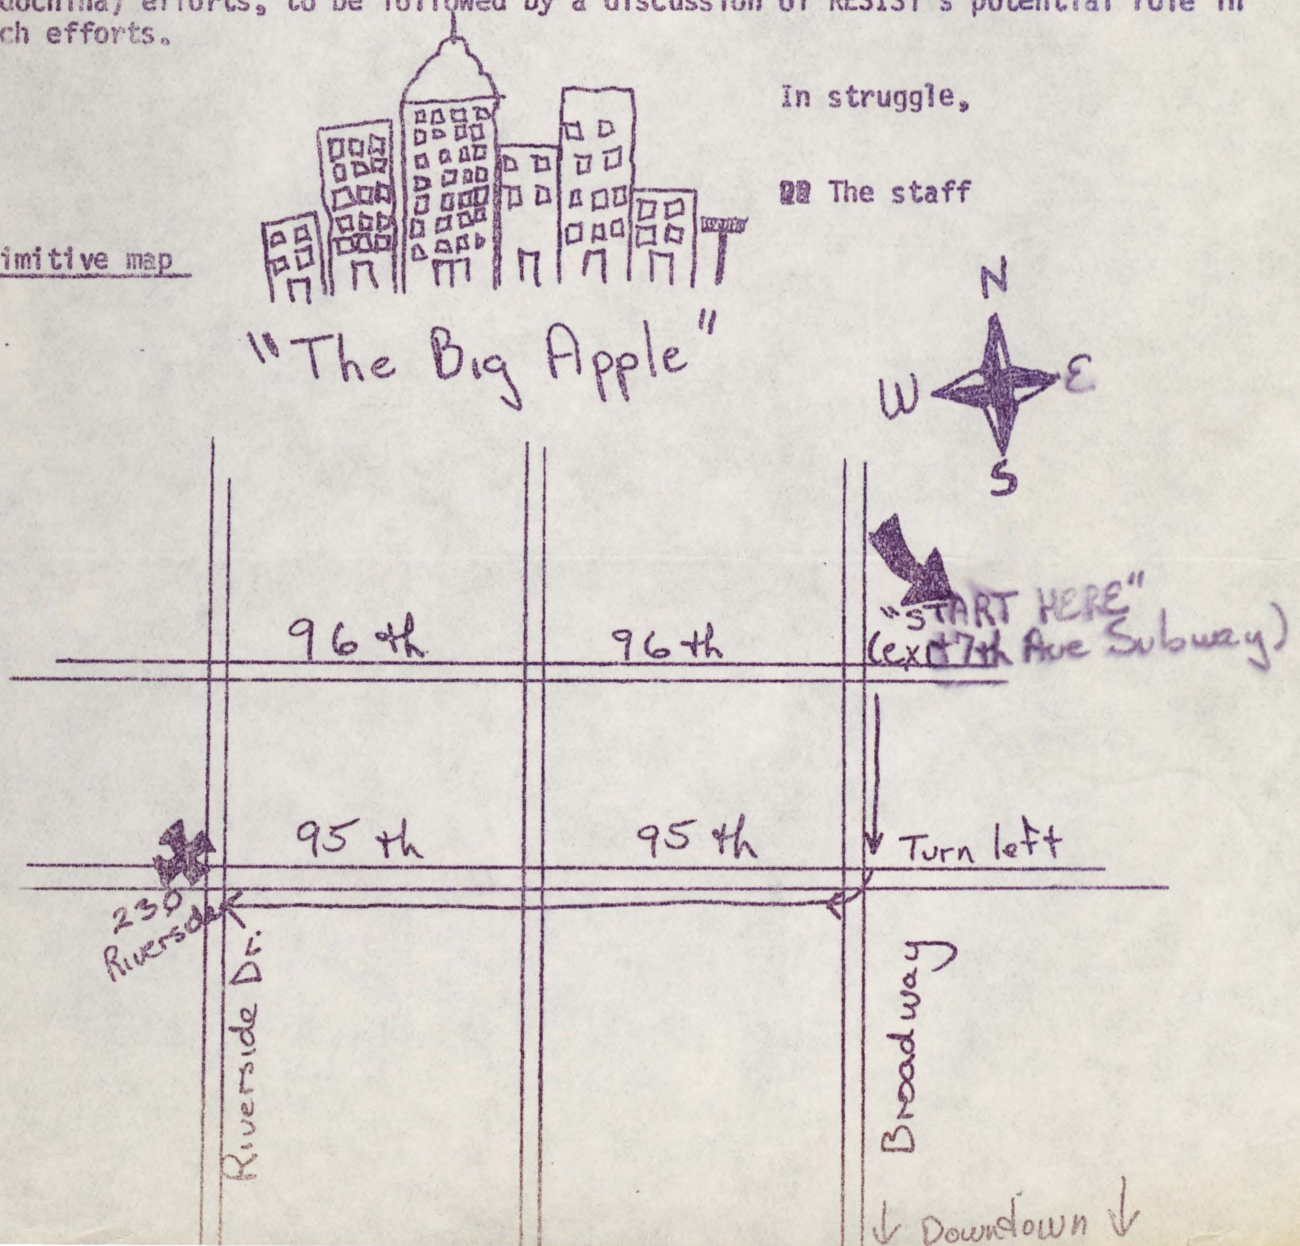 dochina) efforts, to be followed by a discussion of RESIST's potential role in
ch efforts.
In struggle,
The staff
imitive map
"The Big Apple"
N
W E
S
"START HERE"
(exit 7th Ave Subway)
96th 96th
95th 95th
Turn left
230
Riverside
Riverside Dr.
Broadway
↓ Downtown ↓